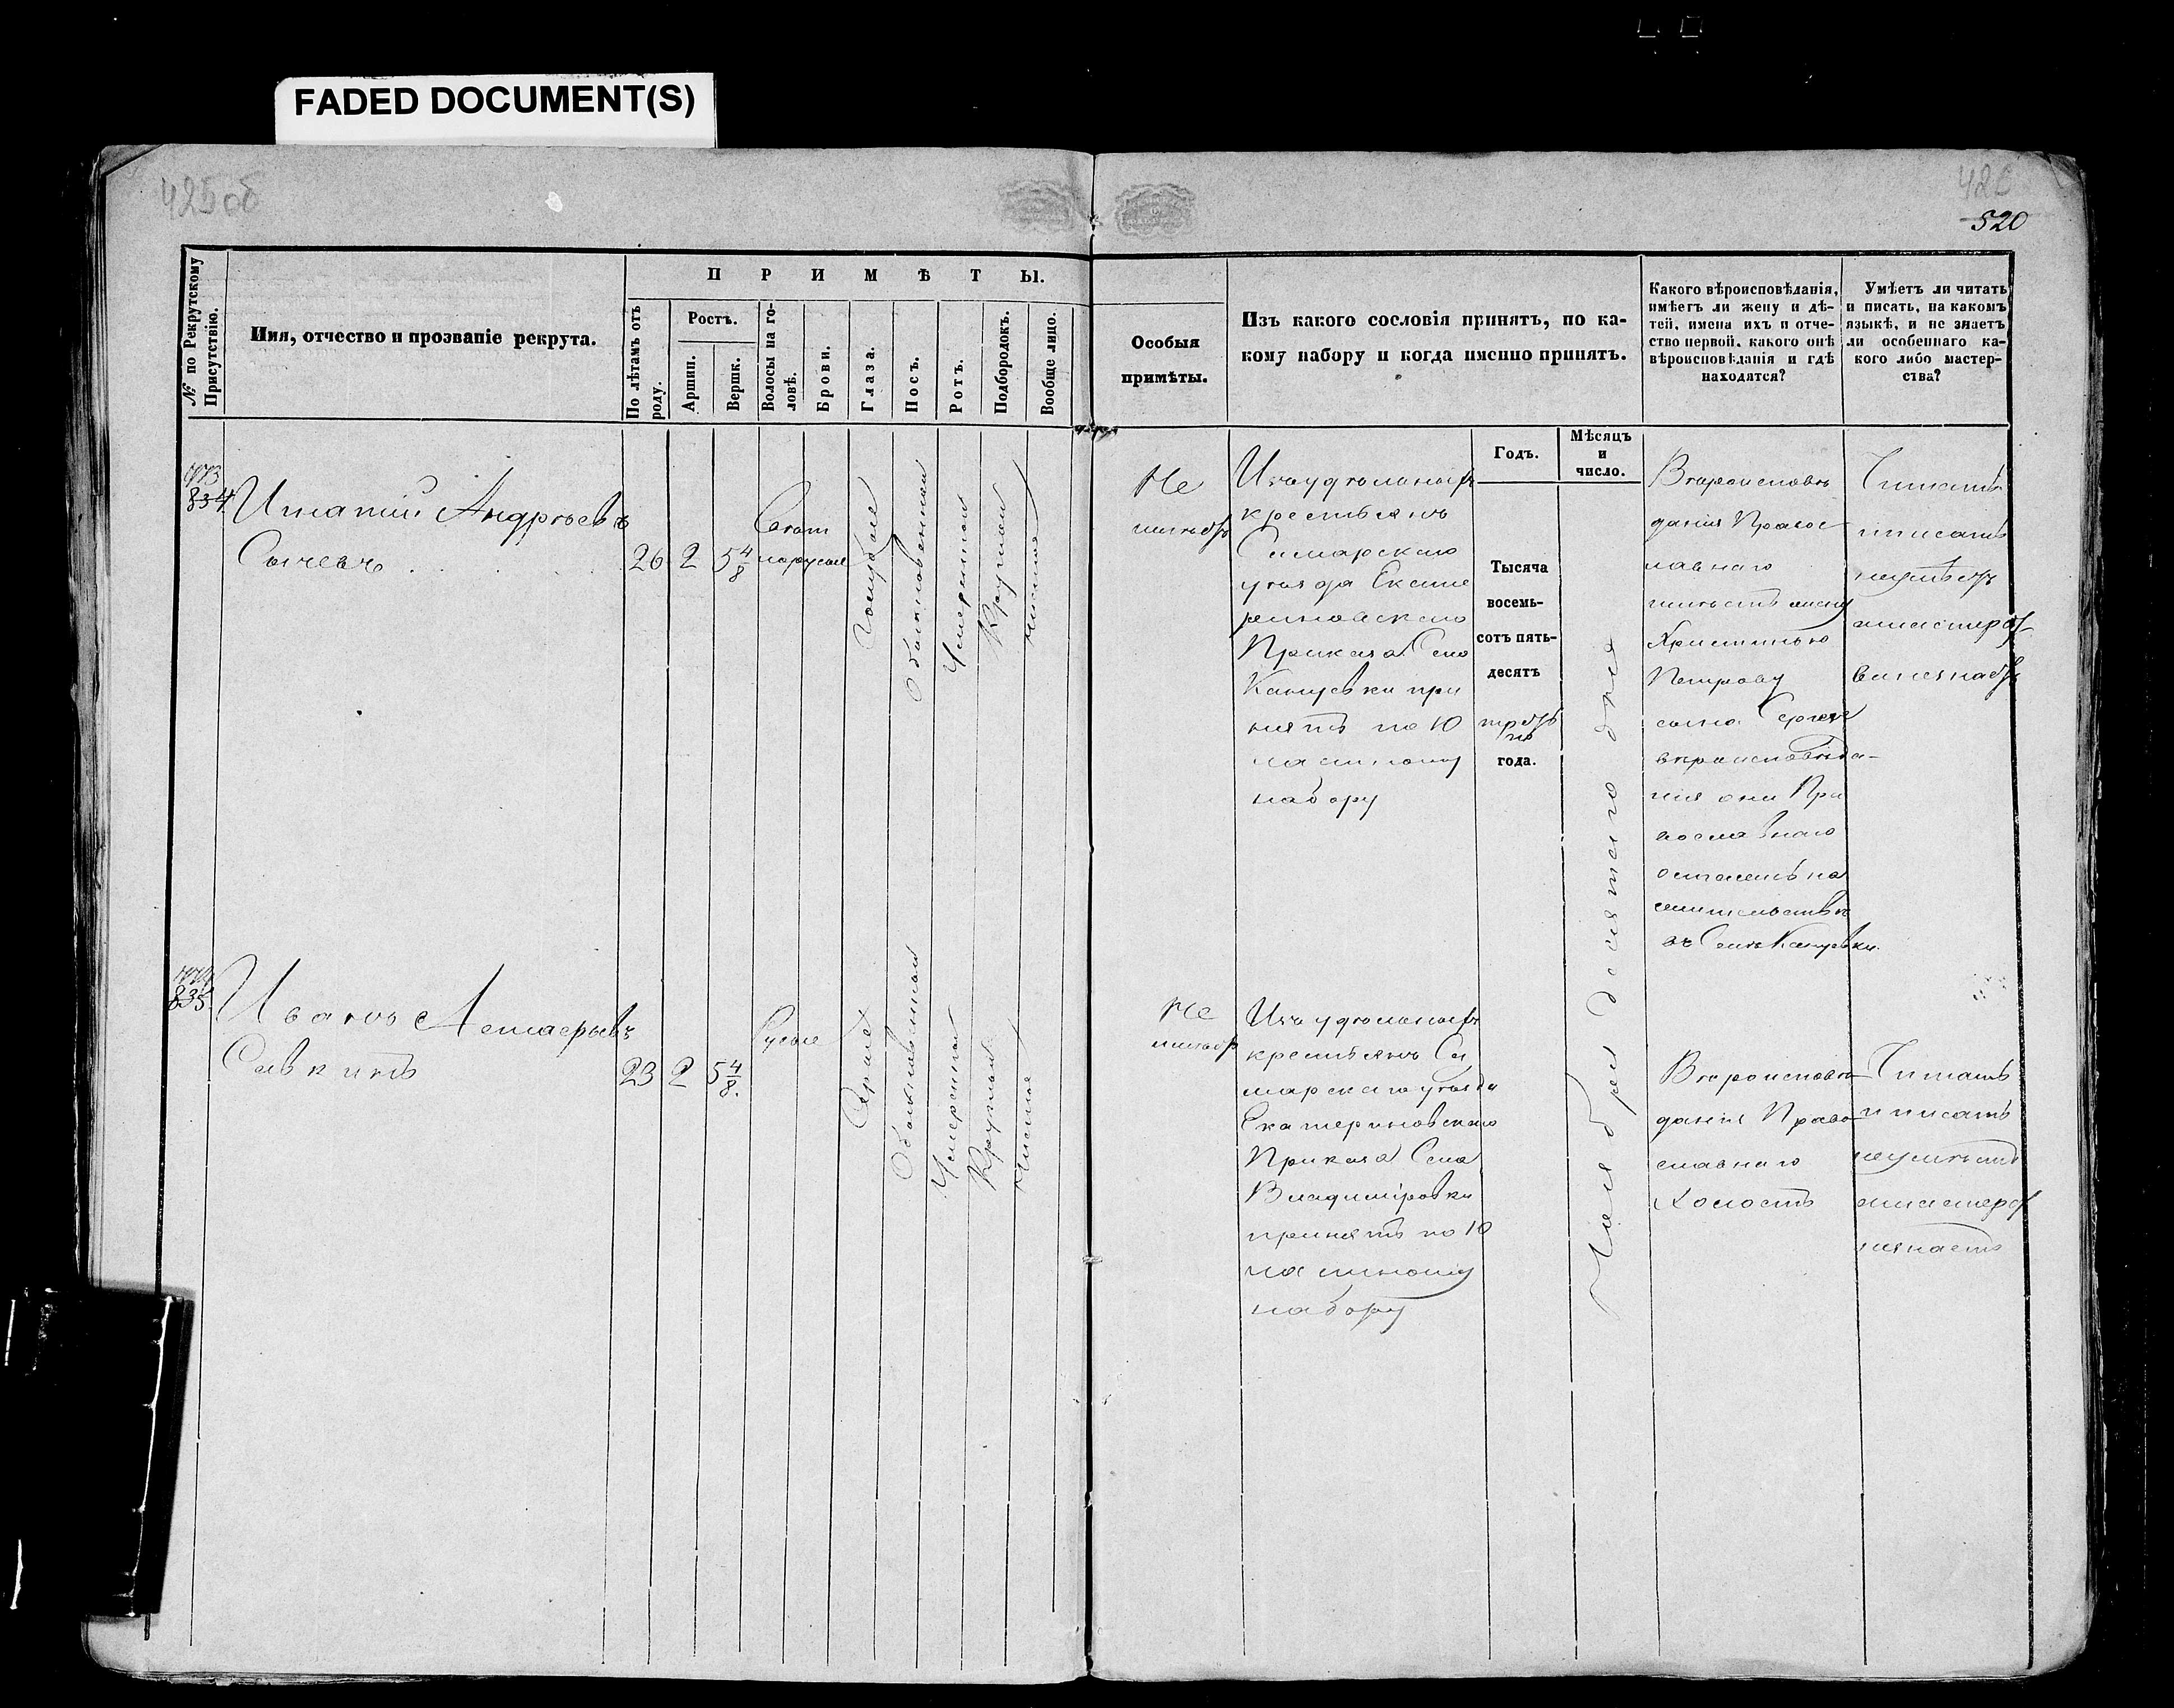 FADED DOCUMENT(S)
425об
520
№ по Рекрутскому Присутствію.
Имя, отчество и прозваніе рекрута.
ПРИМѢТЫ.
По лѣтамъ отъ роду.
Ростъ.
Аршин.
Вершк.
Волосы на головѣ.
Брови.
Глаза.
Носъ.
Ротъ.
Подбородокъ.
Вообще лицо.
Особыя
примѣты.
Изъ какого сословія принятъ, по ка-
кому набору и когда именно принятъ.
Годъ.
Мѣсяцъ
и
число.
Какого вѣроисповѣданія,
имѣетъ ли жену и дѣ-
тей, имена ихъ и отче-
ство первой, какого онѣ
вѣроисповѣданія и гдѣ
находятся?
Умѣетъ ли читать
и писать, на какомъ
языкѣ, и не знаетъ
ли особеннаго ка-
кого либо мастер-
ства?
834
Игнатій Андреевъ
Сычевъ
26
2
5 4/8
Свѣт
лорусые
Голубые
Обыкновенный
Умеренный
Круглый
Чистое
Не
имеетъ
Изъ удельныхъ
крестьянъ
Самарскаго
уезда Екате
риновскаго
Приказа Села
Кануевки при
нятъ по 10
частному
набору
Тысяча
восемь-
сотъ пять-
десятъ
третья
го
года.
Ноября десятаго дня
Вероиспове
дания Правос
лавнаго
имѣетъ жену
Христинью
Петрову
сына Сергея
вероисповеда-
ния они Пра
вославнаго
остались на
жительстве
въ Селе Кануевки.
Читать
и писать
неумѣетъ
мастерст
ва не знаетъ
835
Иванъ Астафьевъ
Савкинъ
23
2
5 4/8.
Русые
Серые
Обыкновенный
Умеренный
Круглый
Чистое
Не
имеетъ
Изъ удельныхъ
крестьянъ Са
марскаго уезда
Екатериновскаго
Приказа Села
Владиміровки
принятъ по 10
частному
набору
Вероиспове
дания Право
славнаго
Холостъ
Читать
и писать
неумеетъ
мастерст
незнаетъ